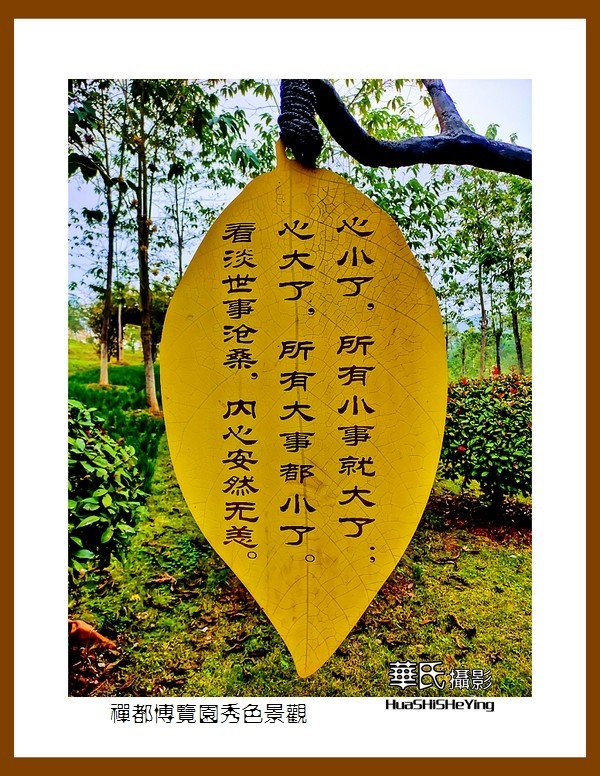 心小了，所有小事就大了；
心大了，所有大事都小了。
看淡世事沧桑，内心安然无恙。
華氏攝影
HuaSHiSHeYing
禪都博覽園秀色景觀